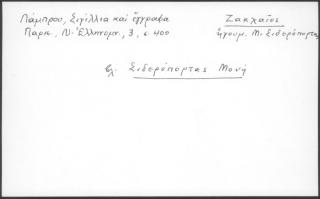 Λάμπρου, Σιγίλλια καὶ ἔγγραφα
Παρν., Ν. Ἑλληνομν., 3, σ. 400
Ζακχαῖος
ἡγουμ. Μ. Σιδερόπορτας
βλ. Σιδερόπορτας Μονή